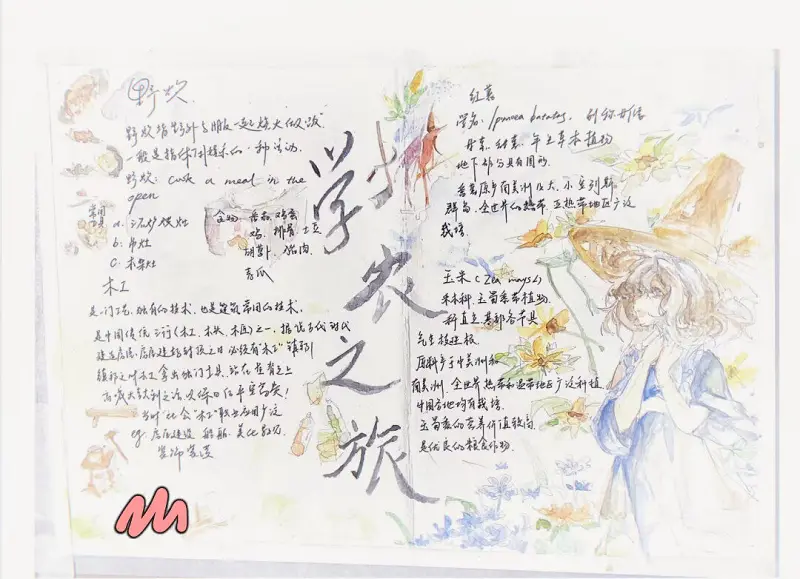 野炊
野炊指野外与朋友一起烧火做饭
一般是指休闲娱乐的一种活动.
野炊: cook a meal in the
open
常用
灶具
a. 泥炉煤灶
b. 吊灶
c. 木架灶
食物: 番茄、鸡蛋
鸡、排骨、土豆
胡萝卜、猪肉、
青瓜
木工
是一门工艺,独有的技术,也是建筑常用的技术,
是中国传统三行(木工、木头、木匠)之一,据说古代
建造房屋,房屋建好封顶之日必须有"木工"镇
当时社会"木工"职业应用广泛
eg: 房屋建造 船舶、美化
装饰家具
学农之旅
红薯
学名: Ipomoea batatas.
年生草本植物
地下部分具有圆形、
番薯原产南美洲及大、小安列斯
群岛,全世界的热带、亚热带地区广泛
栽培.
玉米 (Zea mays L)
禾本科、玉蜀黍属植物.
秆直立,基部各节具
气生根
原产于中美洲和
南美洲,全世界热带和温带地区广泛种植
中国各地均有栽培.
玉蜀黍的营养价值较高
是优良的粮食作物.